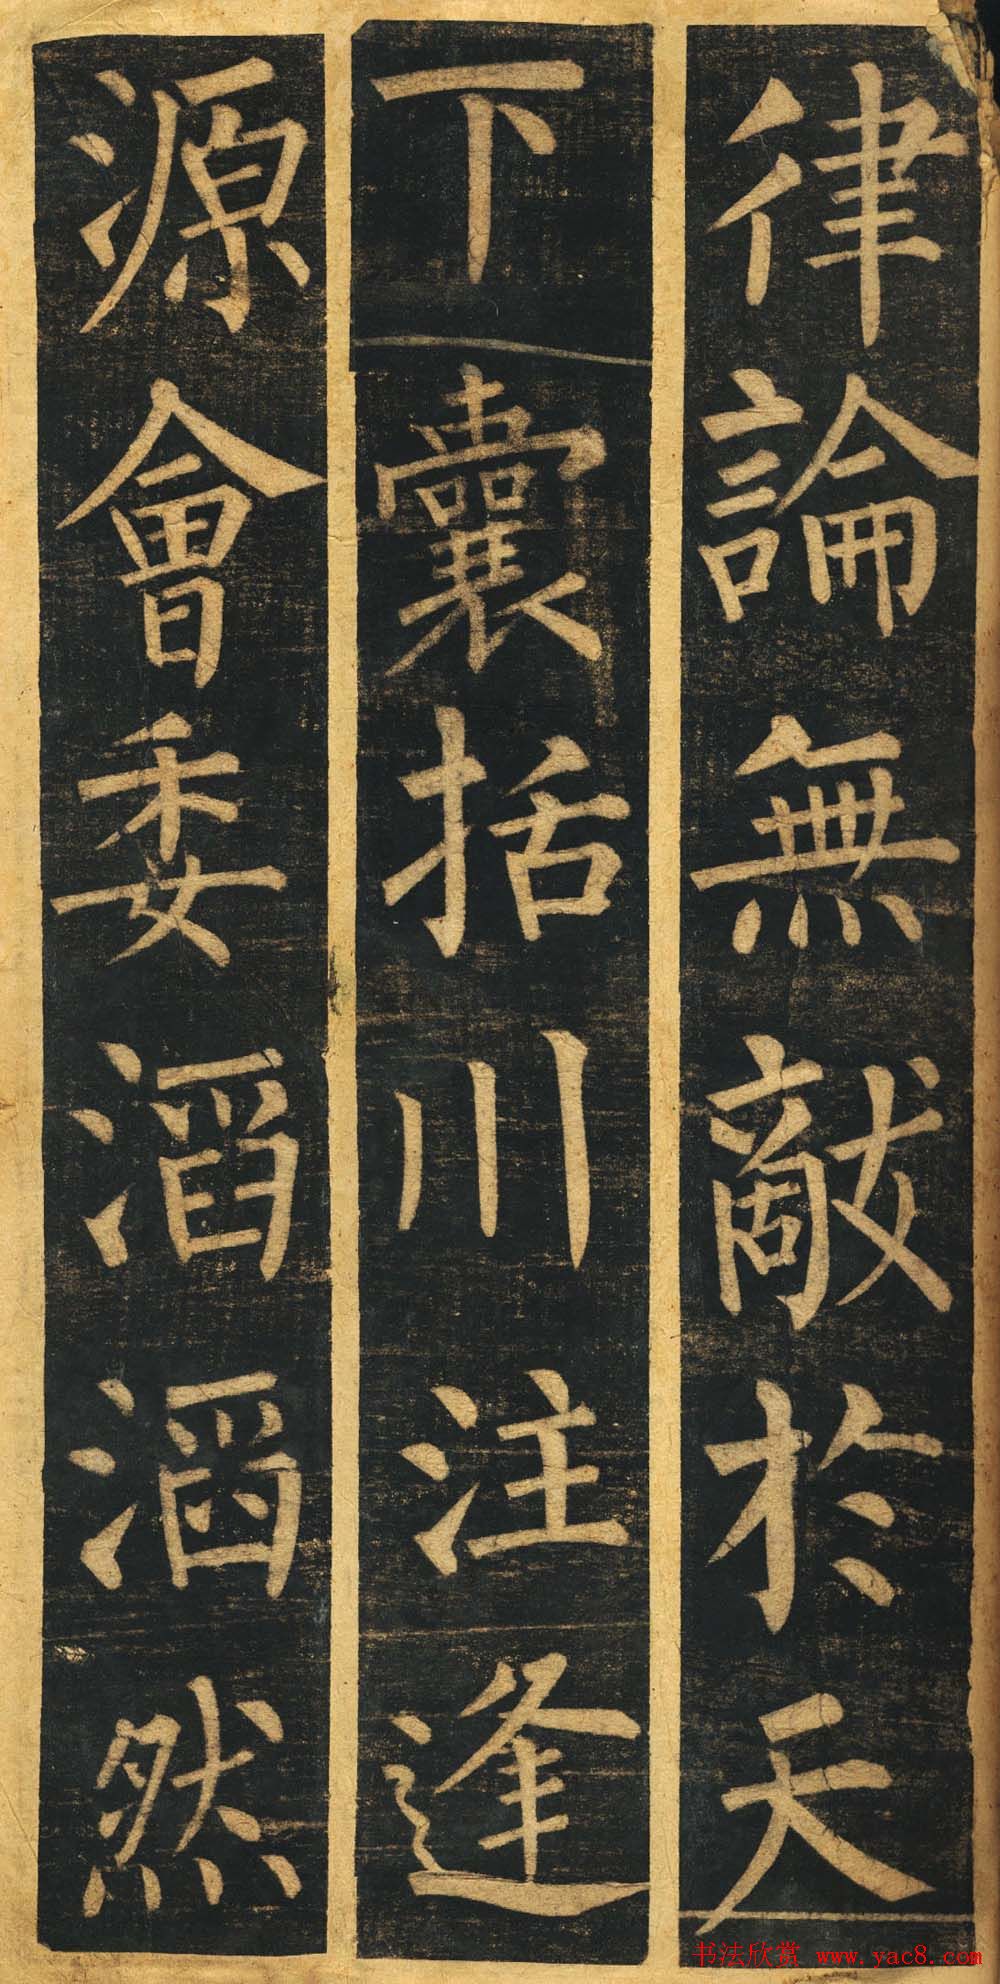 律論無敵於天
下囊括川注逢
源會委滔滔然
书法欣赏 www.yac8.com